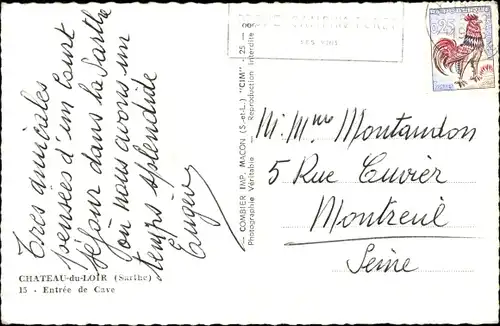 Très amicales
pensées d'un court
séjour dans la Sarthe
où nous avons un
temps splendide
CHATEAU-du-LOIR (Sarthe)
15 - Entrée de Cave
COMBIER IMP. MACON (S.-et-L.) "CIM"
Photographie Véritable - Reproduction Interdite
M. Mme Montandon
5 Rue Cuvier
Montreuil
Seine